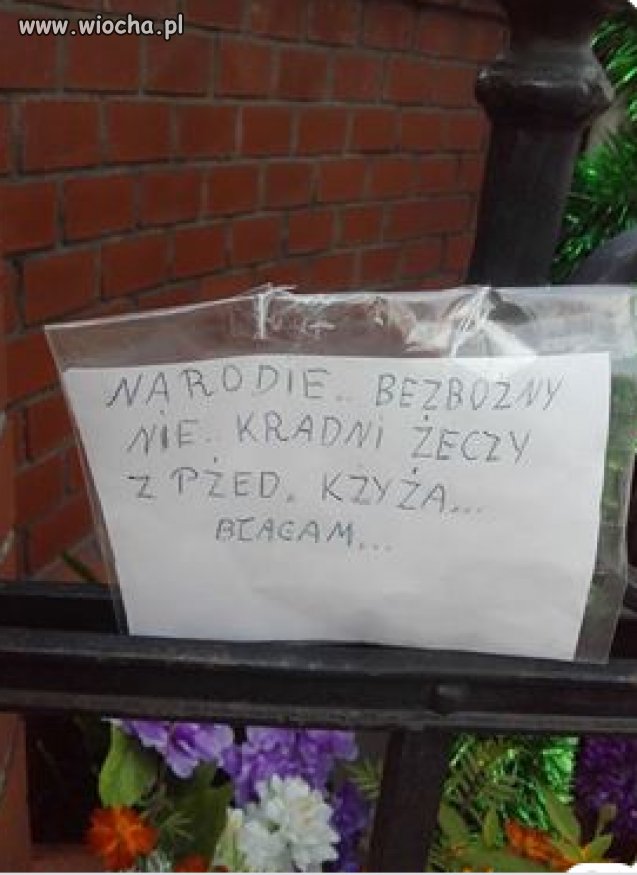 www.wiocha.pl
NARODIE.. BEZBOŻNY
NIE. KRADNI ŻECZY
Z PŻED. KŻYŻA...
BŁAGAM...